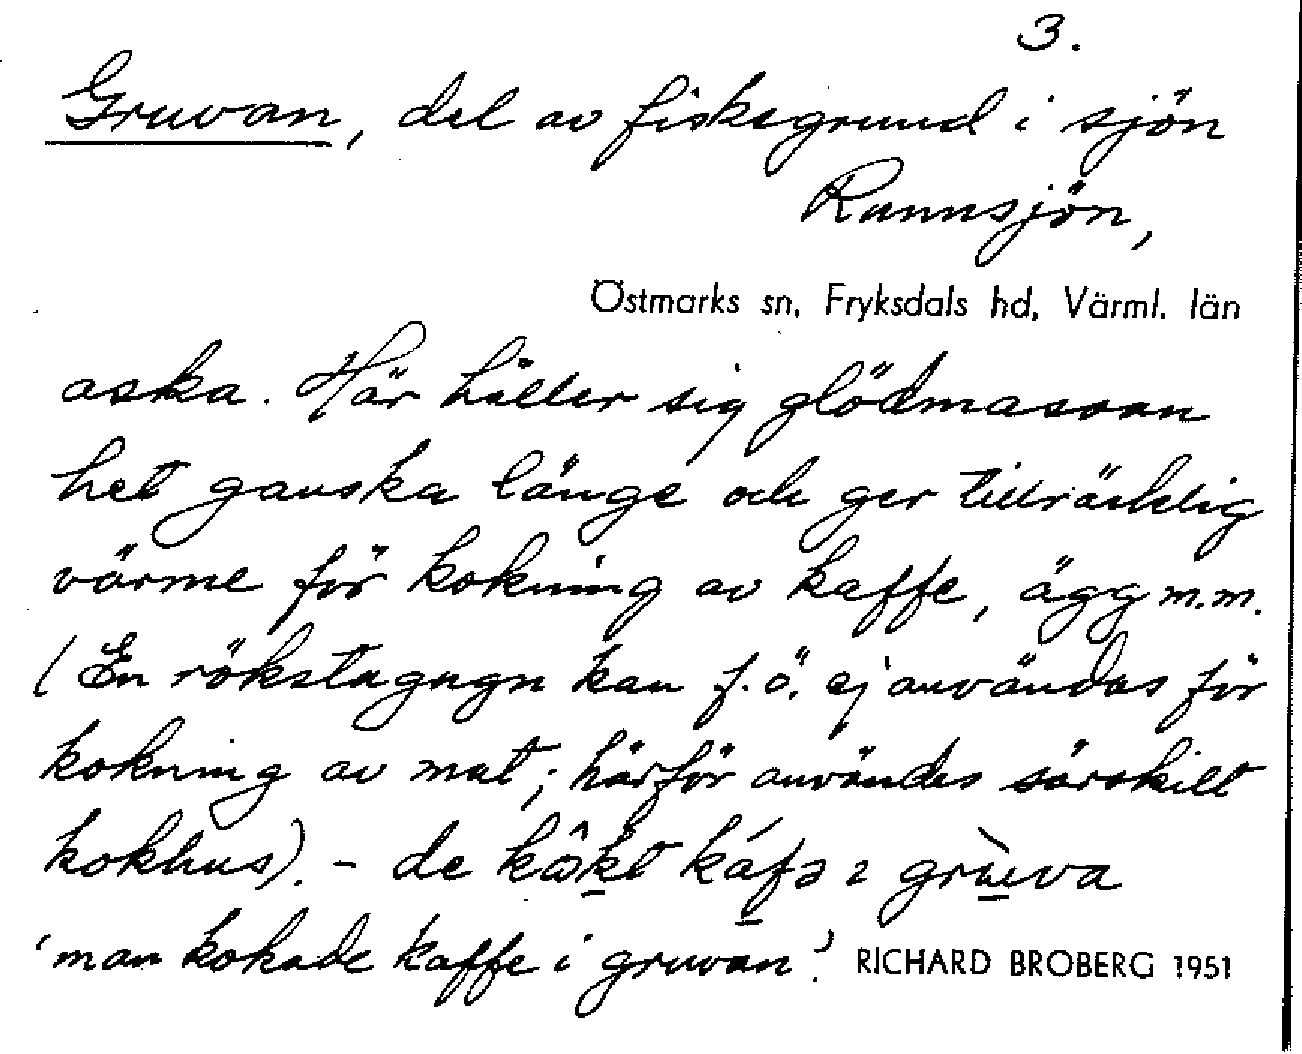 3.
Gruvan, del av fiskegrund i sjön
Rannsjön,
Östmarks sn, Fryksdals hd, Värml. län
aska. Här håller sig glödmassan
het ganska länge och ger tillräcklig
värme för kokning av kaffe, ägg m.m.
(En rökstugugn kan f.ö. ej användas för
kokning av mat; härför användes särskilt
kokhus). – de
'man kokade kaffe i gruvan'. RICHARD BROBERG 1951